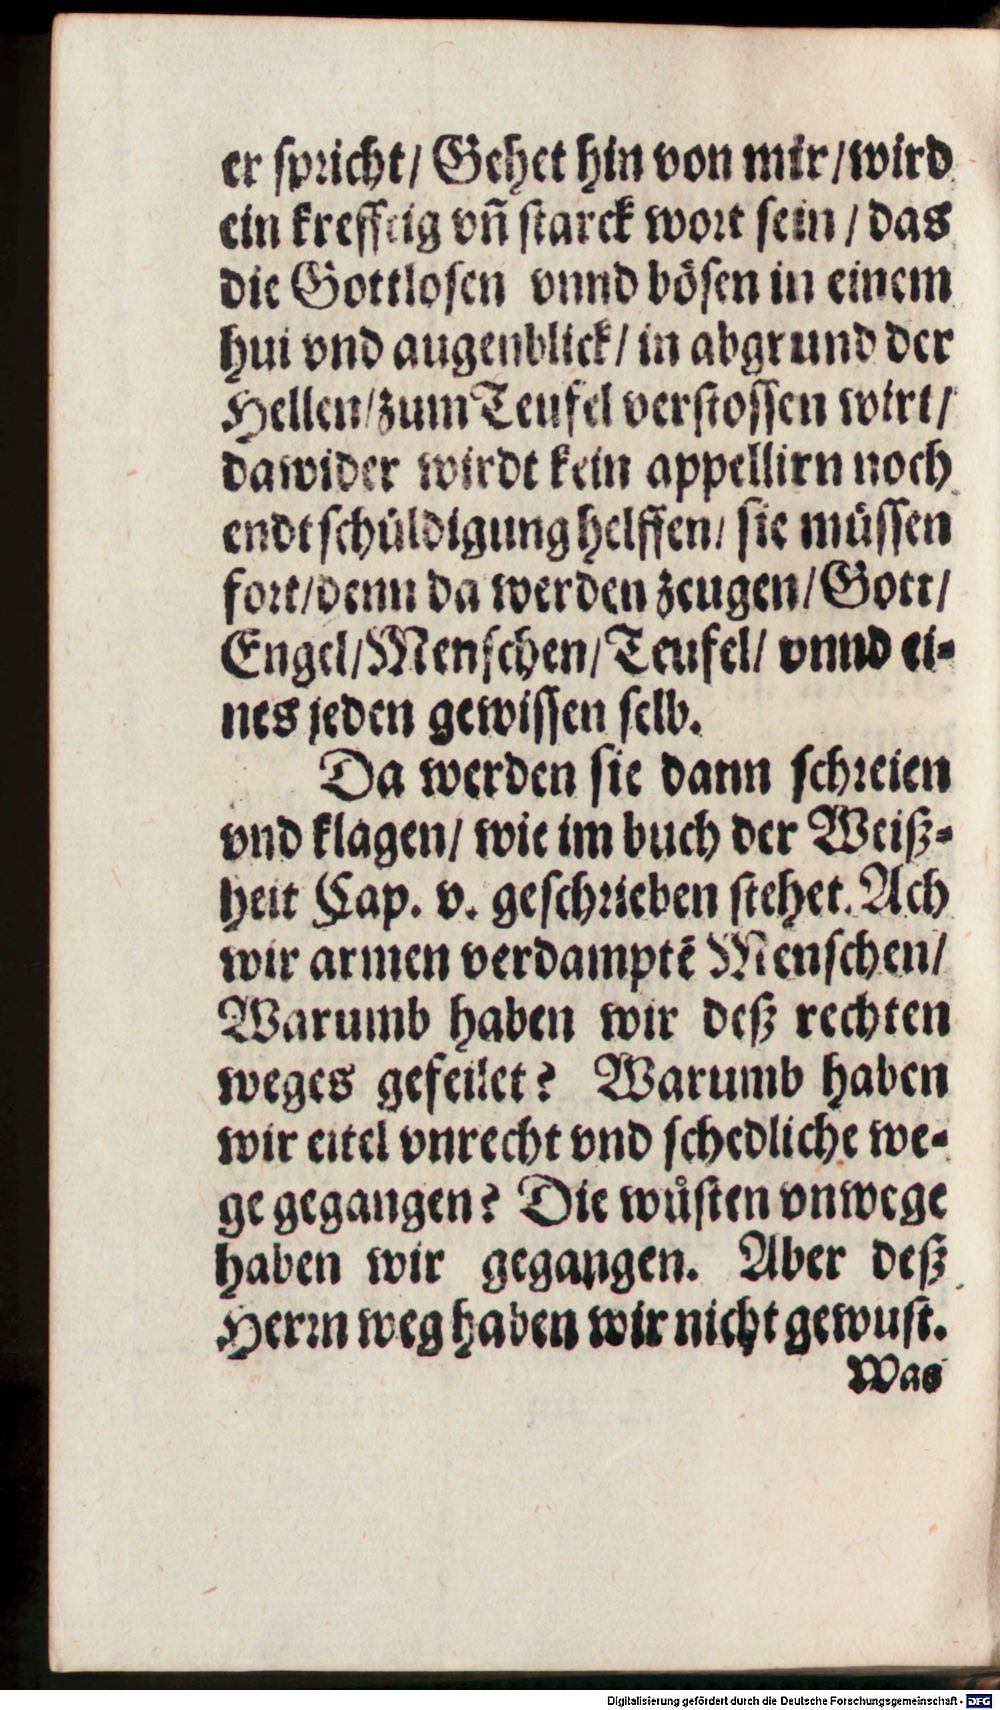 er spricht/ Gehet hin von mir/wird
ein krefftig vñ starck wort sein / das
die Gottlosen vnnd bösen in einem
hui vnd augenblick/ in abgrund der
Hellen/zum Teufel verstossen wirt/
dawider wirdt kein appellirn noch
endtschüldigung helffen/ sie müssen
fort/denn da werden zeugen/Gott/
Engel/Menschen/Teufel/ vnnd ei-
nes jeden gewissen selb.
Da werden sie dann schreien
vnd klagen/ wie im buch der Weiß-
heit Cap. v. geschrieben stehet. Ach
wir armen verdamptē Menschen/
Warumb haben wir deß rechten
weges gefeilet? Warumb haben
wir eitel vnrecht vnd schedliche we-
ge gegangen? Die wüsten vnwege
haben wir gegangen. Aber deß
Herrn weg haben wir nicht gewust.
Was
Digitalisierung gefördert durch die Deutsche Forschungsgemeinschaft - DFG